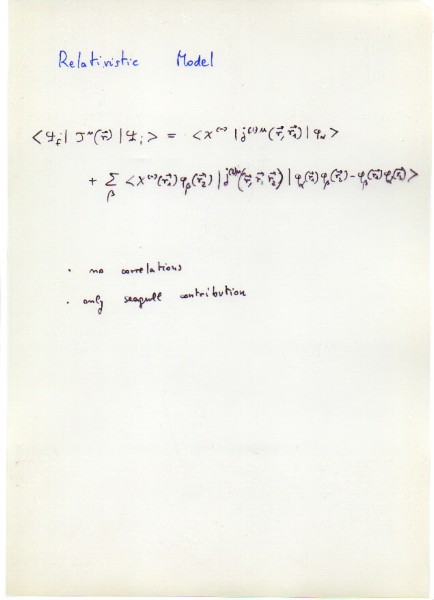 Relativistic Model
<Ψ_f| J^μ(r⃗) |Ψ_i> = <χ^(-) |j^(1)μ(r⃗, r⃗_1)| φ_α>
+ Σ_β <χ^(-)(r⃗_1) φ_β(r⃗_2) |j^(2)μ(r⃗, r⃗_1 r⃗_2)| φ_α(r⃗_1) φ_β(r⃗_2) - φ_β(r⃗_1) φ_α(r⃗_2)>
· no correlations
· only seagull contribution